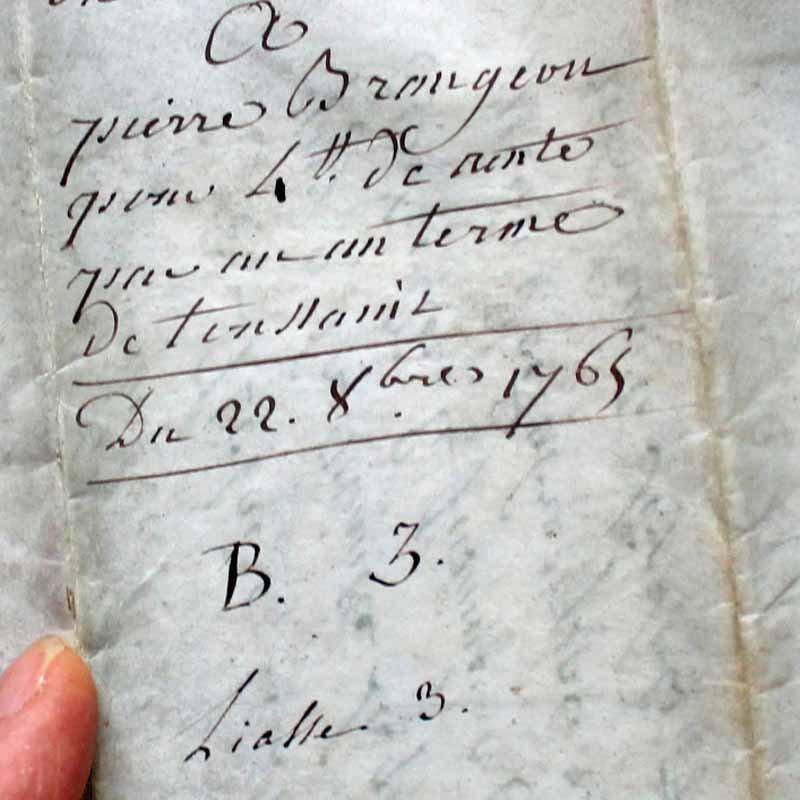 A
pierre Brongeon
pour 4tt. de rente
par an au terme
De toussaint
Du 22. Xbres 1765
B. 3.
Liasse 3.